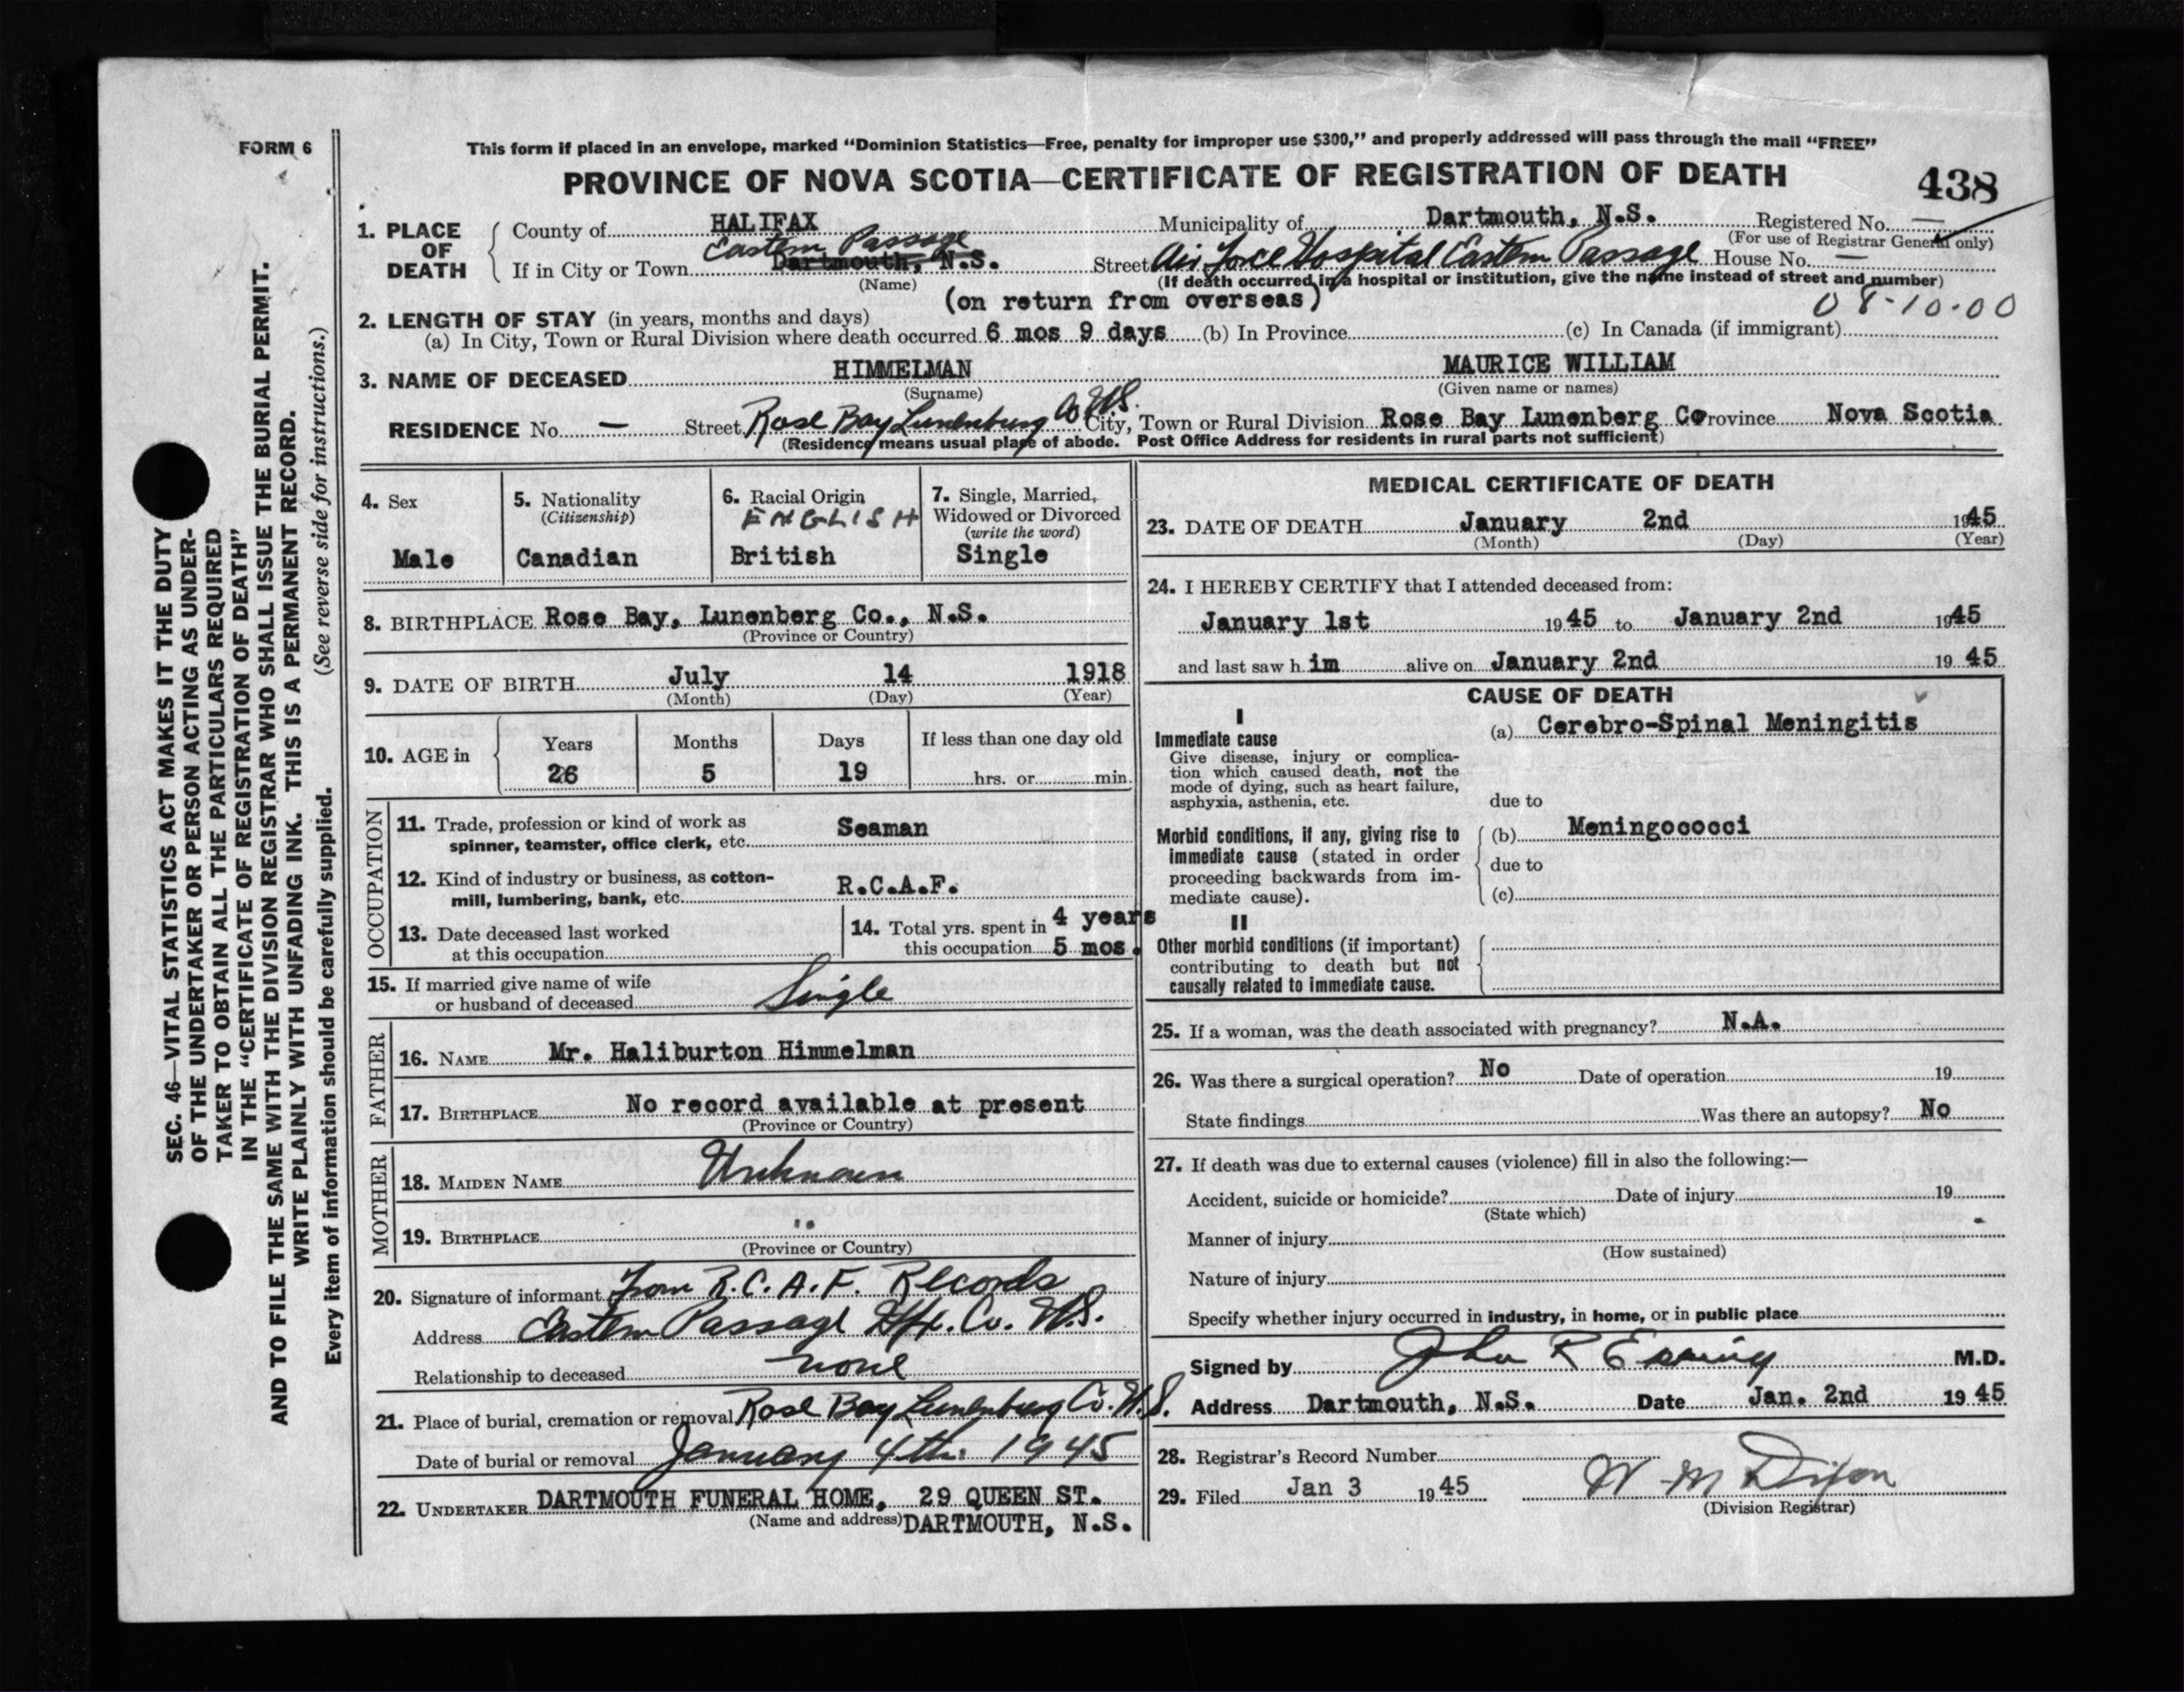 FORM 6
This form if placed in an envelope, marked “Dominion Statistics—Free, penalty for improper use $300,” and properly addressed will pass through the mail “FREE”
PROVINCE OF NOVA SCOTIA—CERTIFICATE OF REGISTRATION OF DEATH
438
1. PLACE OF DEATH
County of HALIFAX Municipality of Dartmouth, N.S. Registered No. —
(For use of Registrar General only)
Eastern Passage
If in City or Town Dartmouth, N.S. Street Air Force Hospital Eastern Passage House No. —
(Name) (If death occurred in a hospital or institution, give the name instead of street and number)
(on return from overseas) 08-10-00
2. LENGTH OF STAY (in years, months and days)
(a) In City, Town or Rural Division where death occurred 6 mos 9 days (b) In Province (c) In Canada (if immigrant)
3. NAME OF DECEASED HIMMELMAN MAURICE WILLIAM
(Surname) (Given name or names)
RESIDENCE No. — Street Rose Bay Lunenburg Co N.S. City, Town or Rural Division Rose Bay Lunenberg Co Province Nova Scotia
(Residence means usual place of abode. Post Office Address for residents in rural parts not sufficient)
SEC. 46—VITAL STATISTICS ACT MAKES IT THE DUTY
OF THE UNDERTAKER OR PERSON ACTING AS UNDER-
TAKER TO OBTAIN ALL THE PARTICULARS REQUIRED
IN THE “CERTIFICATE OF REGISTRATION OF DEATH”
AND TO FILE THE SAME WITH THE DIVISION REGISTRAR WHO SHALL ISSUE THE BURIAL PERMIT.
WRITE PLAINLY WITH UNFADING INK. THIS IS A PERMANENT RECORD.
Every item of information should be carefully supplied. (See reverse side for instructions.)
4. Sex
Male
5. Nationality
(Citizenship)
Canadian
6. Racial Origin
ENGLISH
British
7. Single, Married,
Widowed or Divorced
(write the word)
Single
8. BIRTHPLACE Rose Bay, Lunenberg Co., N.S.
(Province or Country)
9. DATE OF BIRTH July 14 1918
(Month) (Day) (Year)
10. AGE in
Years Months Days If less than one day old
26 5 19 hrs. or min.
OCCUPATION
11. Trade, profession or kind of work as
spinner, teamster, office clerk, etc. Seaman
12. Kind of industry or business, as cotton-
mill, lumbering, bank, etc. R.C.A.F.
13. Date deceased last worked
at this occupation
14. Total yrs. spent in 4 years
this occupation 5 mos.
15. If married give name of wife
or husband of deceased Single
FATHER
16. NAME Mr. Haliburton Himmelman
17. BIRTHPLACE No record available at present
(Province or Country)
MOTHER
18. MAIDEN NAME Unknown
19. BIRTHPLACE "
(Province or Country)
20. Signature of informant From R.C.A.F. Records
Address Eastern Passage Hfx. Co. N.S.
Relationship to deceased none
21. Place of burial, cremation or removal Rose Bay Lunenburg Co. N.S.
Date of burial or removal January 4th 1945
22. UNDERTAKER DARTMOUTH FUNERAL HOME, 29 QUEEN ST.
(Name and address) DARTMOUTH, N.S.
MEDICAL CERTIFICATE OF DEATH
23. DATE OF DEATH January 2nd 1945
(Month) (Day) (Year)
24. I HEREBY CERTIFY that I attended deceased from:
January 1st 1945 to January 2nd 1945
and last saw him alive on January 2nd 1945
CAUSE OF DEATH
I
Immediate cause
Give disease, injury or complica-
tion which caused death, not the
mode of dying, such as heart failure,
asphyxia, asthenia, etc.
(a) Cerebro-Spinal Meningitis
due to
Morbid conditions, if any, giving rise to
immediate cause (stated in order
proceeding backwards from im-
mediate cause).
(b) Meningococci
due to
(c)
II
Other morbid conditions (if important)
contributing to death but not
causally related to immediate cause.
25. If a woman, was the death associated with pregnancy? N.A.
26. Was there a surgical operation? No Date of operation 19
State findings Was there an autopsy? No
27. If death was due to external causes (violence) fill in also the following:—
Accident, suicide or homicide? Date of injury 19
(State which)
Manner of injury
(How sustained)
Nature of injury
Specify whether injury occurred in industry, in home, or in public place
Signed by John R M.D.
Address Dartmouth, N.S. Date Jan. 2nd 1945
28. Registrar's Record Number
29. Filed Jan 3 1945 W M Dixon
(Division Registrar)